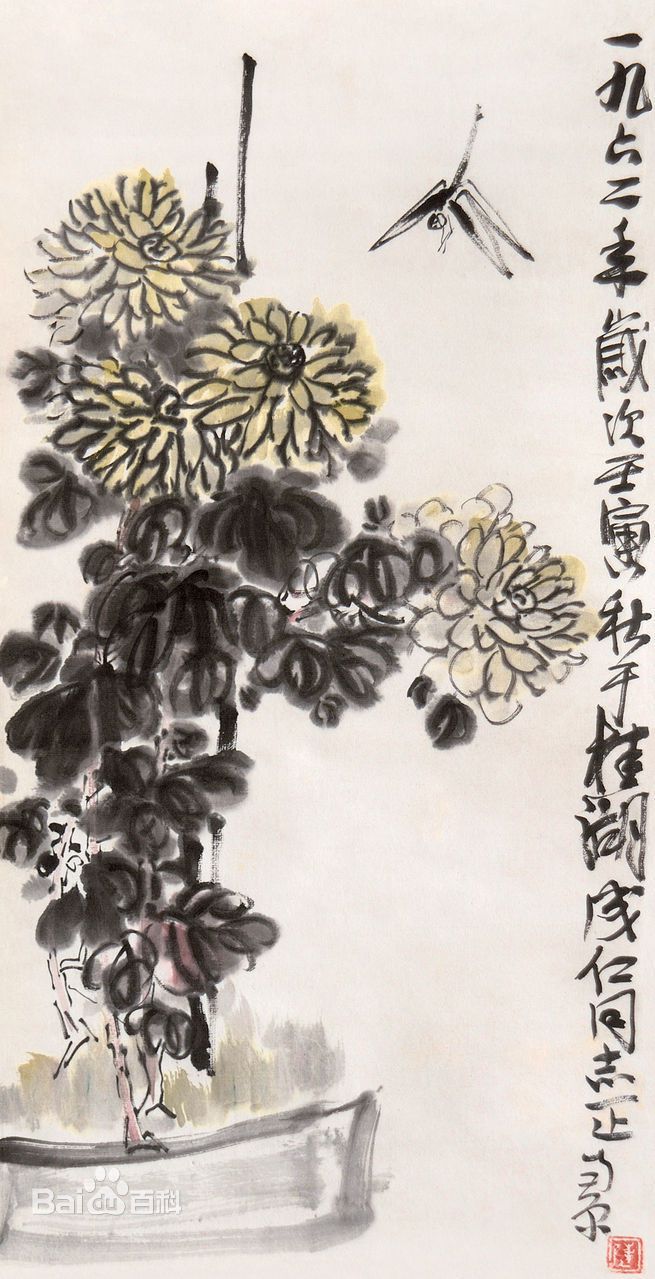 一九六二年歲次壬寅秋于桂湖成仁同志正
Bai百科